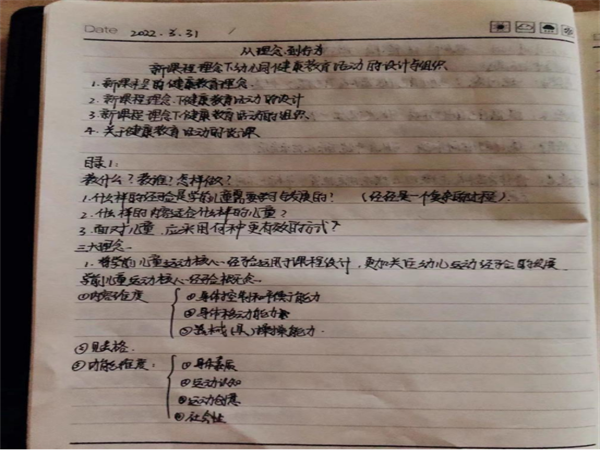 Date 2022.3.31
从理念到行为
新课程理念下幼儿园健康教育活动的设计与组织
1.新课程的健康教育理念
2.新课程理念下健康教育活动的设计
3.新课程理念下健康教育活动的组织
4.关于健康教育活动的说课
目录1:
教什么?教谁?怎样做?
1.什么样的经验是学前儿童需要学习与发展的?(经验是一个复杂的过程)
2.什么样的内容适合什么样的儿童?
3.面对儿童,应采用何种更有效的方式?
三大理念
1.将学前儿童运动核心经验运用于课程设计,更加关注幼儿运动经验的发展
学前儿童运动核心经验概念
①内容维度
①身体控制和平衡能力
②身体移动能力
③器械(具)操控能力.
②
③功能维度:
①身体素质
②运动认知
③运动
④社会性